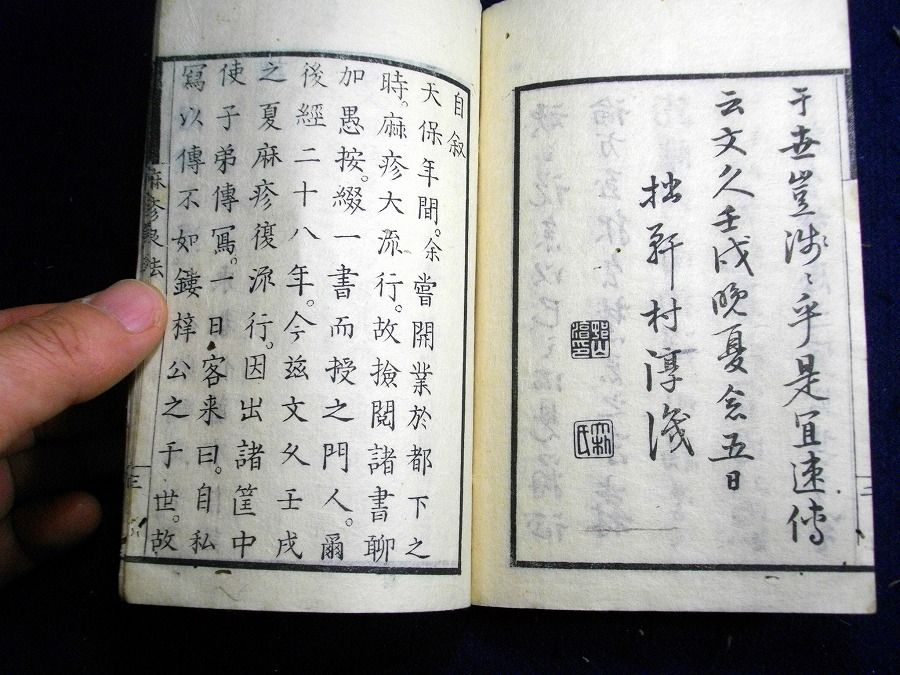 于世豈淺〻乎是宜速傳
云文久壬戌晚夏念五日
拙軒村淳識
自叙
天保年間。余嘗開業於都下之
時。麻疹大流行。故撿閲諸書聊
加愚按。綴一書而授之門人。爾
後經二十八年。今茲文久壬戌
之夏麻疹復流行。因出諸筐中
使子弟傳寫。一日客来曰。自私
寫以傳不如鏤梓公之于世。故
三